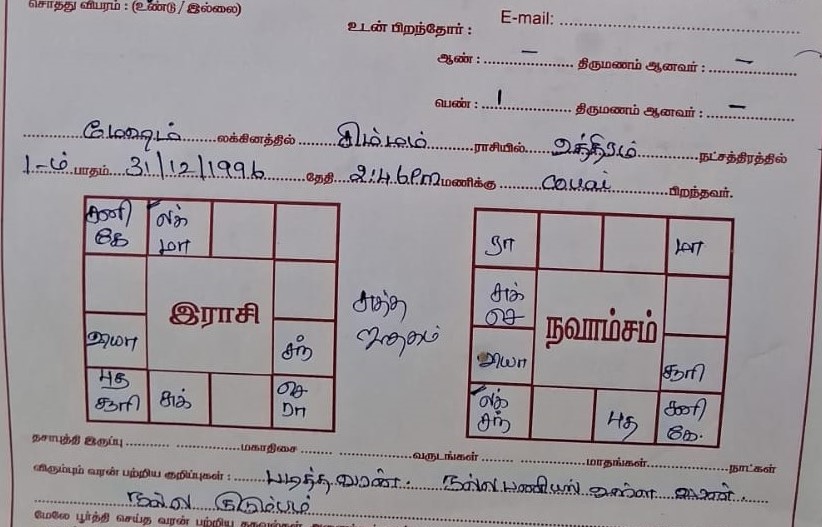 சொத்து விபரம் : (உண்டு / இல்லை)
E-mail:
உடன் பிறந்தோர் :
ஆண் : - திருமணம் ஆனவர் : -
பெண் : 1 திருமணம் ஆனவர் : -
மேஷம் லக்கினத்தில் சிம்மம் ராசியில் உத்திரம் நட்சத்திரத்தில்
1-ம் பாதம் 31/12/1996 தேதி 2:46 PM மணிக்கு கோவை பிறந்தவர்.
சனி லக்
கே மா
இராசி
சந்
புத சூரி சுக் செ ரா
சுத்த
ஜாதகம்
ரா மா
சுக் செ
நவாம்சம்
சூரி
லக் சந் புத சனி கே.
தசாபுத்தி இருப்பு மகாதிசை வருடங்கள் மாதங்கள் நாட்கள்
விரும்பும் வரன் பற்றிய குறிப்புகள் : படித்த வரன். நல்ல பணியில் உள்ள வரன்.
நல்ல குடும்பம்
மேலே பூர்த்தி செய்த வரன் பற்றிய தகவல்கள்